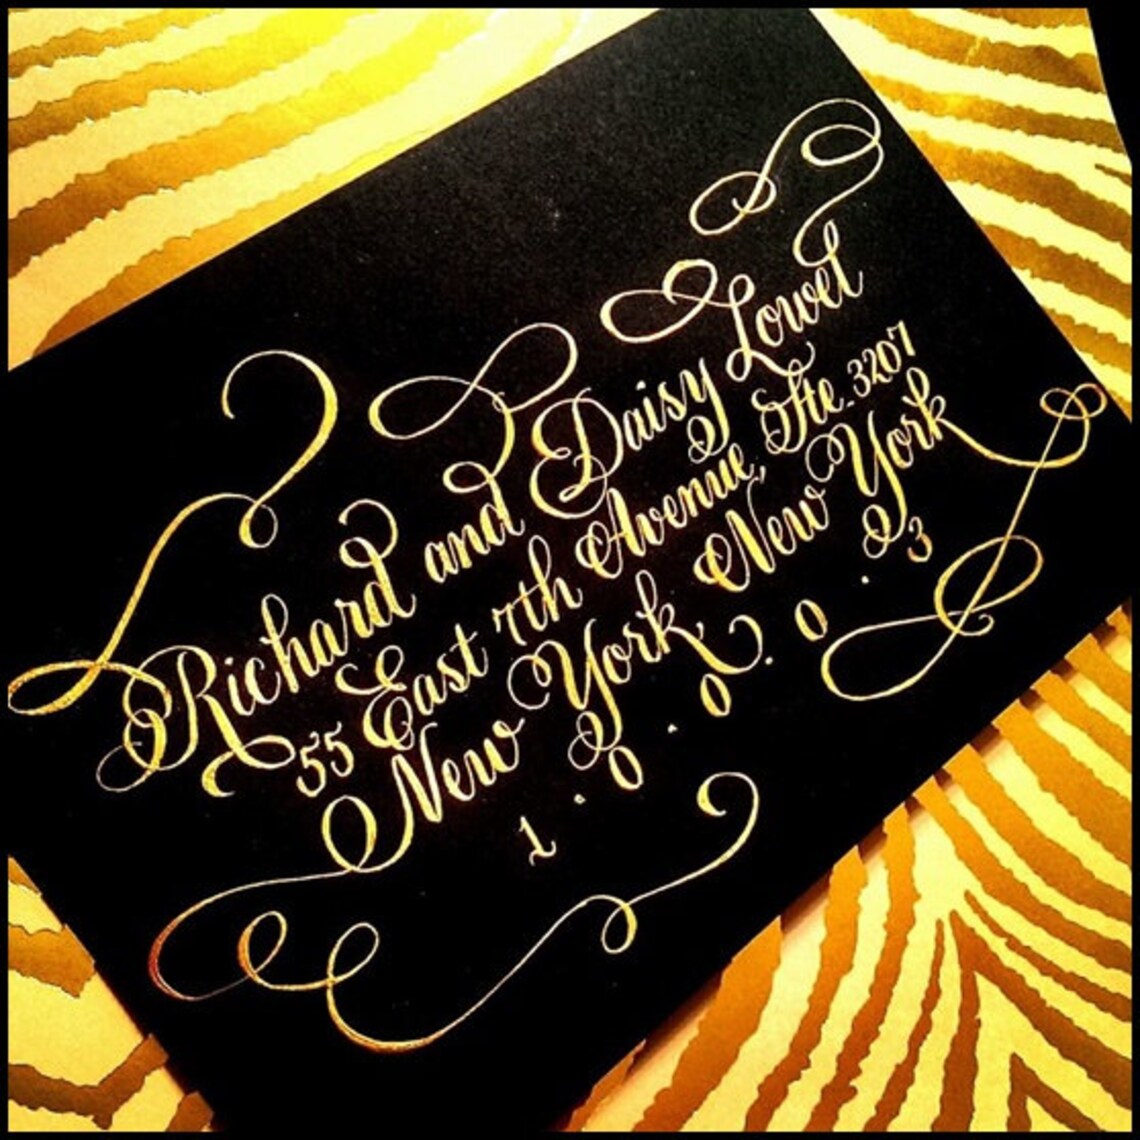 Richard and Daisy Lowel
55 East 7th Avenue, Ste. 3207
New York New York
1 · 0 · 0 · 0 · 3